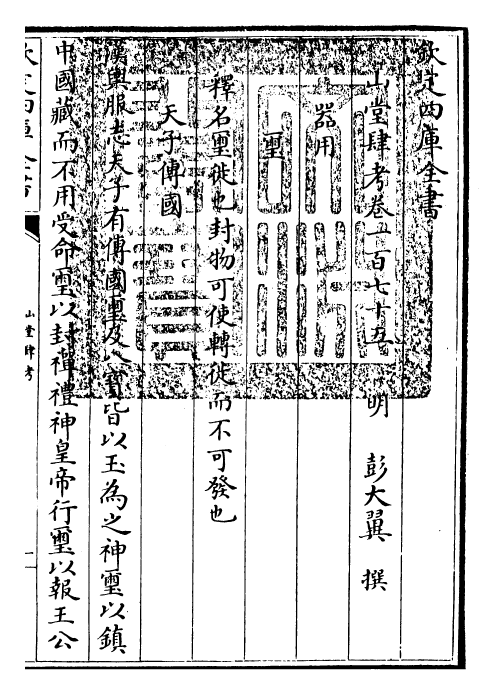 欽定四庫全書
山堂肆考卷一百七十五 明 彭大翼 撰
器用
璽
釋名璽徙也封物可使轉徙而不可發也
天子傳國
漢輿服志天子有傳國璽及八寶皆以玉為之神璽以鎮
中國藏而不用受命璽以封禪禮神皇帝行璽以報王公
欽定四庫全書
山堂肆考
一